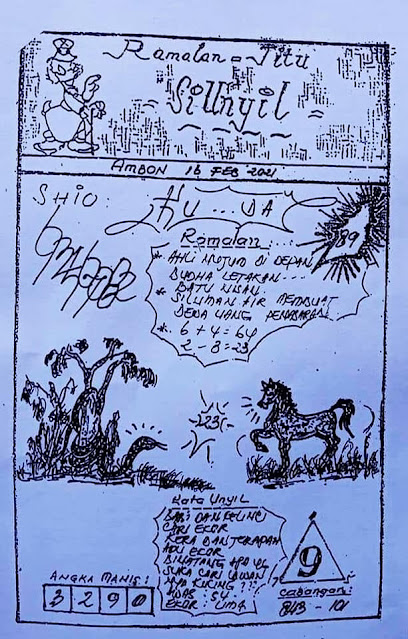 Ramalan = Jitu
Si Unyil
AMBON 16 FEB 2021
SHIO:
KU...DA
89
Ramalan:
* AHLI NUJUM DI DEPAN
BUDHA LETAKAN...
BATU NISAN.
* SILUMAN AIR MEMBUAT
DEWA UANG PENASARAN
* 6 + 4 = 64
2 - 8 = 23
123
Kata Unyil
SAPI DAN KELINCI
CARI EKOR
KERA DAN TERAPAN
ADU EKOR
BINATANG APA YG
SUKA CARI LAWAN
KIRING
ADAS : 54
EKOR : LIMA
9
ANGKA MANIS:
3 2 9 0
Cabangan:
843 - 101